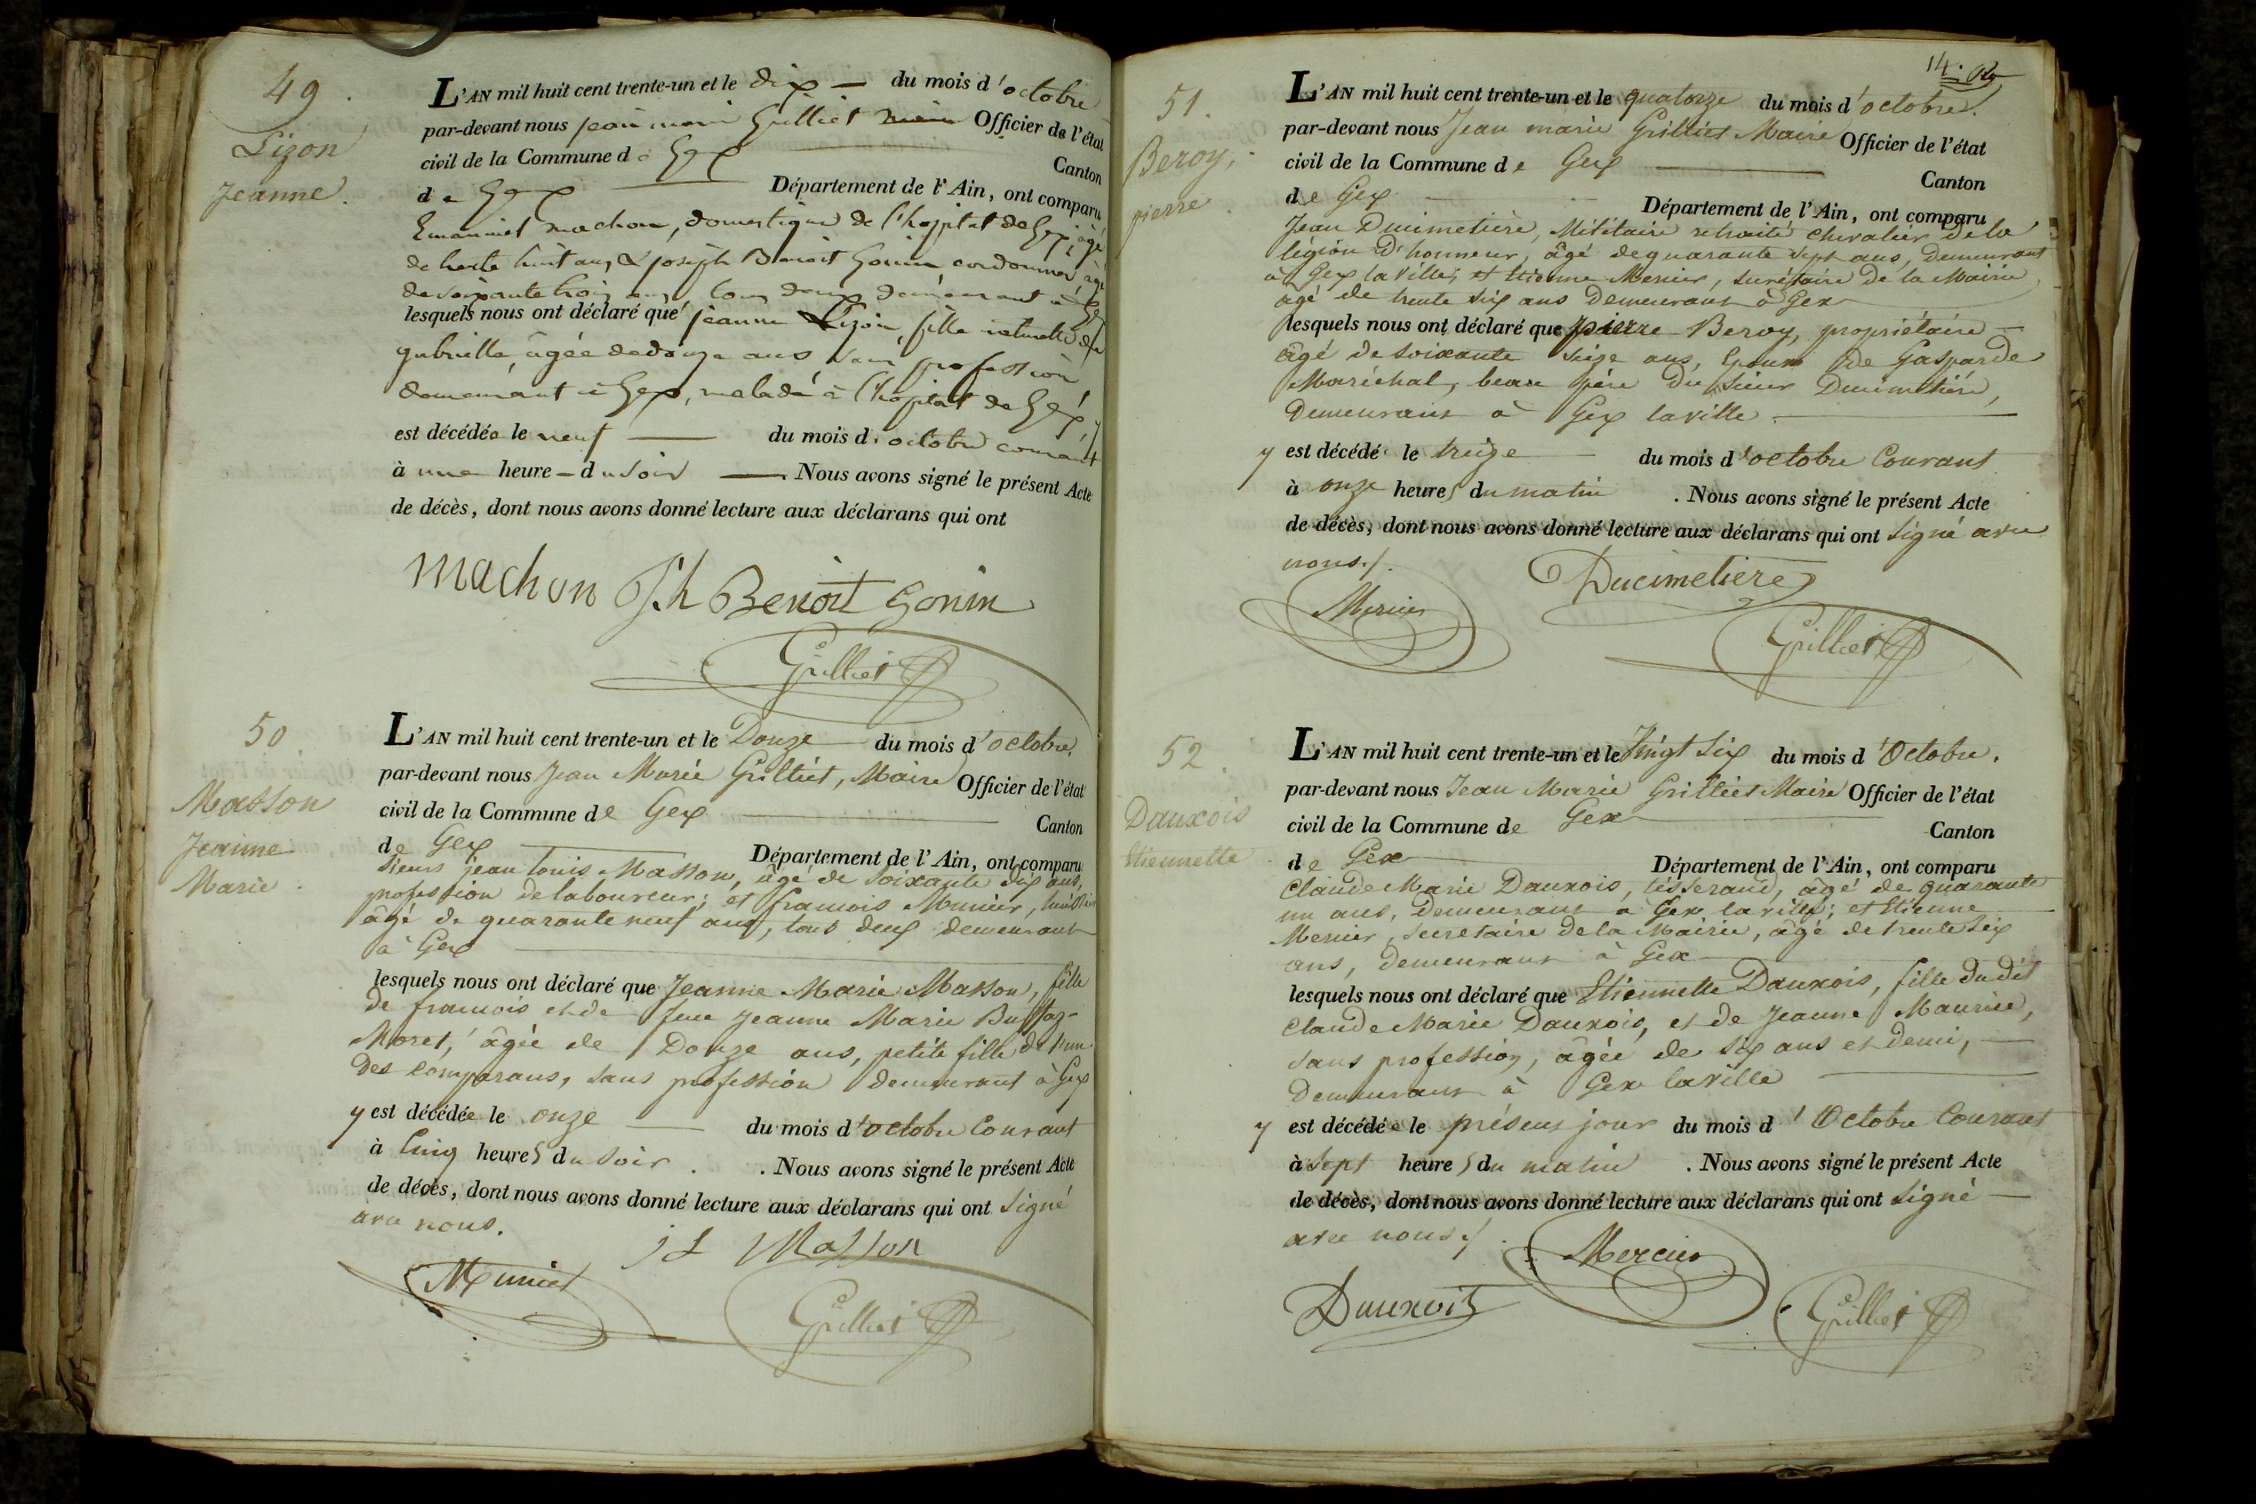 49.
Lizon
Jeanne.
L'AN mil huit cent trente-un et le dix du mois d'octobre
par-devant nous jean marie Grilliet maire Officier de l'état
civil de la Commune de Gex
Canton
de Gex Département de l'Ain, ont comparu
Emanuiel machon, domestique de l'hopital de Gex, agé
de trente huit ans, & joseph Benoit Gonin, cordonnier, agé
de soixante trois ans, tous deux demeurant à Gex
lesquels nous ont déclaré que jeanne Lizon, fille naturelle de
gabrielle, âgée de douze ans sans profession
demeurant à Gex, malade à l'hopital de Gex, y
est décédée le neuf du mois d'octobre courant
à une heure du soir Nous avons signé le présent Acte
de décès, dont nous avons donné lecture aux déclarans qui ont
machon Jh Benoit Gonin
Grilliet
50
Masson
Jeanne
Marie.
L'AN mil huit cent trente-un et le Douze du mois d'octobre.
par-devant nous Jean Marie Grilliet, Maire Officier de l'état
civil de la Commune de Gex
Canton
de Gex Département de l'Ain, ont comparu
sieurs jean Louis Masson, âgé de soixante dix ans,
profession de laboureur; et francois Munier, huissier
âgé de quarante neuf ans, tous deux demeurant
à Gex
lesquels nous ont déclaré que Jeanne Marie Masson, fille
de francois et de feue Jeanne Marie
Moret, âgée de Douze ans, petite fille de l'un
des comparans, sans profession demeurant à Gex
y est décédée le onze du mois d'octobre Courant
à Cinq heures du soir. . Nous avons signé le présent Acte
de décès, dont nous avons donné lecture aux déclarans qui ont signé
avec nous.
J L Masson
Munier
Grilliet
14.
51.
Beroy,
pierre.
L'AN mil huit cent trente-un et le quatorze du mois d'octobre.
par-devant nous Jean marie Grilliet Maire Officier de l'état
civil de la Commune de Gex
Canton
de Gex Département de l'Ain, ont comparu
Jean Ducimetière, Militaire retraité chevalier de la
légion d'honneur, âgé de quarante sept ans, demeurant
à Gex la ville; et Etienne Mercier, secrétaire de la Mairie
âgé de trente six ans demeurant à Gex
lesquels nous ont déclaré que pierre Beroy, propriétaire
âgé de soixante seize ans, Epoux de Gasparde
Maréchal, beau père du sieur Ducimetière,
demeurant à Gex la ville
y est décédé le treize du mois d'octobre Courant
à onze heures du matin . Nous avons signé le présent Acte
de décès, dont nous avons donné lecture aux déclarans qui ont signé avec
nous./.
Ducimetière
Mercier
Grilliet
52.
Dauxois
Etiennette
L'AN mil huit cent trente-un et le Vingt six du mois d'Octobre.
par-devant nous Jean Marie Grilliet Maire Officier de l'état
civil de la Commune de Gex
Canton
de Gex Département de l'Ain, ont comparu
Claude Marie Dauxois, tisserand, âgé de quarante
un ans, demeurant à Gex la ville; et Etienne
Mercier, secretaire de la Mairie, âgé de trente six
ans, demeurant à Gex
lesquels nous ont déclaré que Etiennette Dauxois, fille du dit
Claude Marie Dauxois, et de Jeanne Maurice,
sans profession, âgée de six ans et demi,
Demeurant à Gex la ville
y est décédée le présent jour du mois d'Octobre Courant
à sept heures du matin . Nous avons signé le présent Acte
de décès, dont nous avons donné lecture aux déclarans qui ont signé
avec nous./.
Mercier
Dauxois
Grilliet